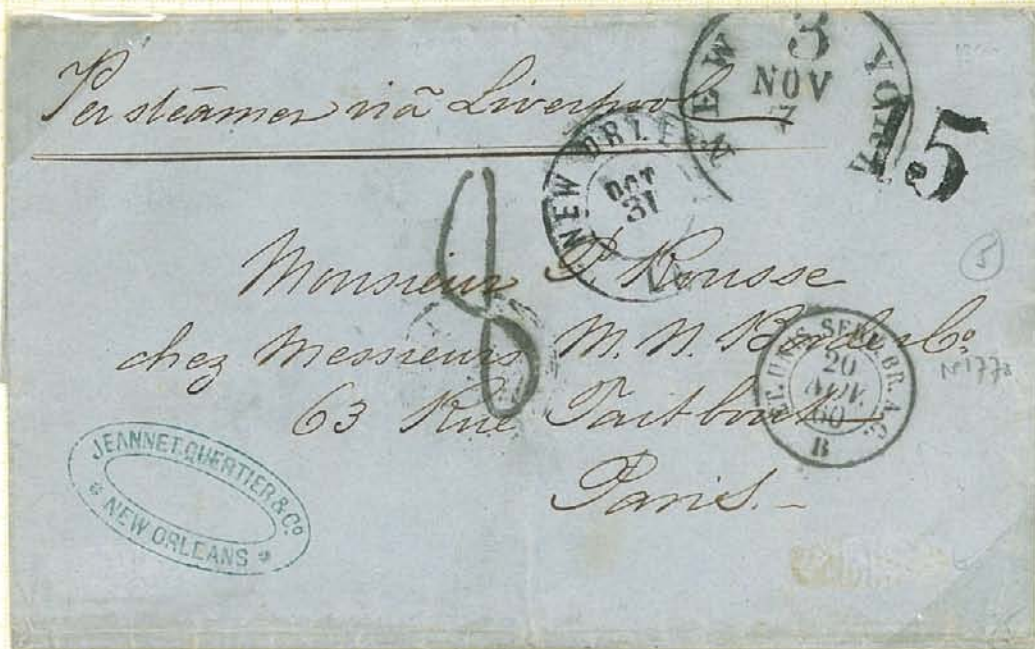 Per steamer viâ Liverpool
NEW YORK
3
NOV
7
15
NEW ORLEANS
OCT
31
8
Monsieur P. Rousse
chez Messieurs M. N. Borde & Co
63 Rue Taitbout
Paris.-
ET. UNIS. SERV. BR. A.C.
20
NOV.
60
B
5
No 1778
JEANNET. QUERTIER & Co
* NEW ORLEANS *